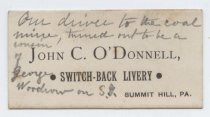 Our driver to the coal
mine, turned out to be a
cousin
of
JOHN C. O'DONNELL,
George
SWITCH-BACK LIVERY
Woodrow on S.
SUMMIT HILL, PA.